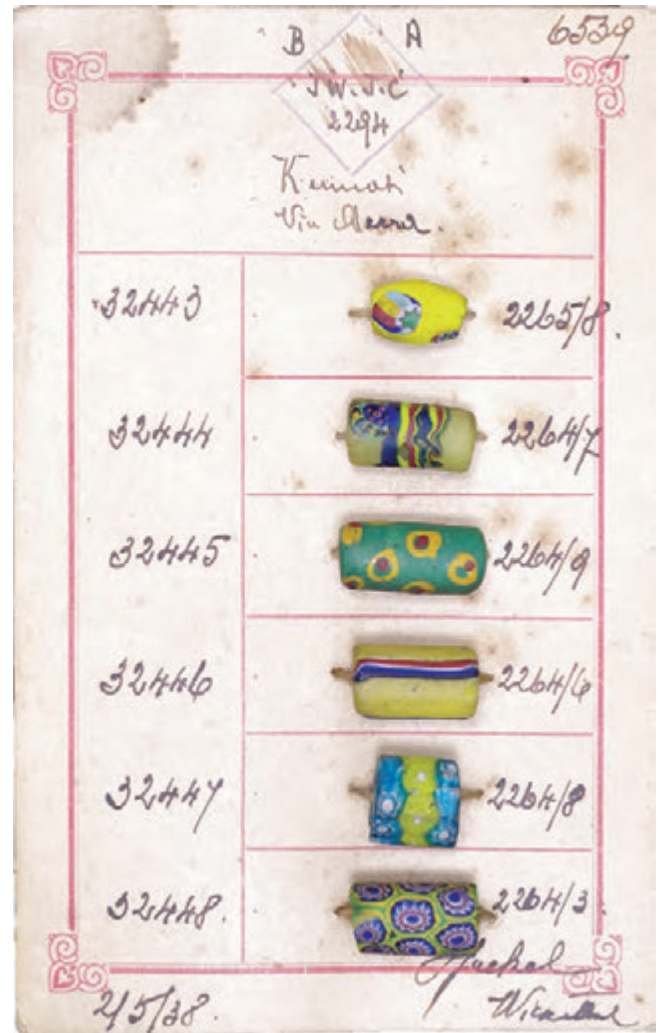 B A 6539
J.W.J.C
2294
Kumasi
Via
32443 2265/8.
32444 2264/7
32445 2264/9
32446 2264/6
32447 2264/8
32448. 2264/3
2/5/38.